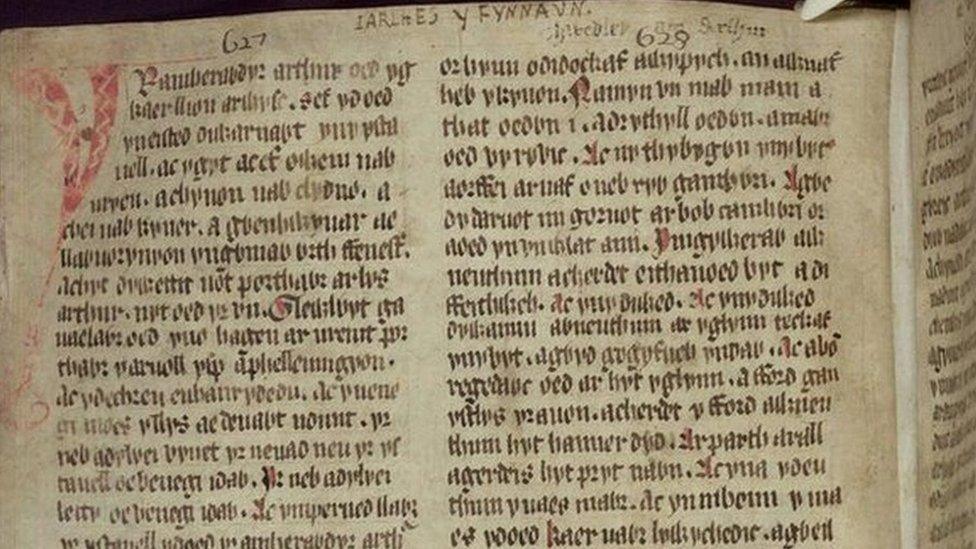 IARLLES Y FYNNAVN.
627
628
Yr amherawdyr arthur oed yg
kaer llion arwysc. Sef ydoed
yn eisted diwarnawt yn y ysta
uell. ac ygyt ac ef owein uab
uryen. a chynon uab clydno. a
chei uab kyner. a gwenhwyuar ae
llawuorynyon yn gwniaw wrth ffenestr.
A chyt dywettit uot porthawr ar lys
arthur. nyt oed yr un. Glewlwyt ga
uaelawr oed yno hagen ar ureint por
thawr y aruoll ysp a phellennigyon.
Ac y dechreu eu hanrydedu. Ac y uene
gi moes y llys ae deuawt udunt. yr
neb a dylyei vynet yr neuad neu yr ys
tauell oe venegi idaw. Yr neb a dylyei
letty oe venegi idaw. Ac ymperued llawr
yr ystauell ydoed yr amherawdyr arth
or hynn odidockaf a wypych.
heb y kynon. Namyn un mab mam a
that oedwn i. a drythyll oedwn. a mawr
oed vy ryvic. Ac ny thybygwn yn y byt
a orffei arnaf o neb ryw gamhwri. A gwe
dy daruot im goruot ar bob camhwri or
a oed yn un wlat a mi. Ymgyweiraw a w
neuthum a cherdet eithauoed byt a di
ffeithwch. Ac yn y diwed. Ac yn y diwed
dywannu a wneuthum ar y glynn teckaf
yn y byt. a gwyd gogyfuch yndaw. Ac auon
redegawc oed ar hyt y glynn. a fford gan
ystlys yr auon. a cherdet y fford a wneu
thum hyt hanner dyd. Ar parth arall
a gerdeis hyt pryt nawn. Ac yna y deu
thum y uaes mawr. Ac yn niben y ma
es ydoed kaer uawr lywychedic. a gweil